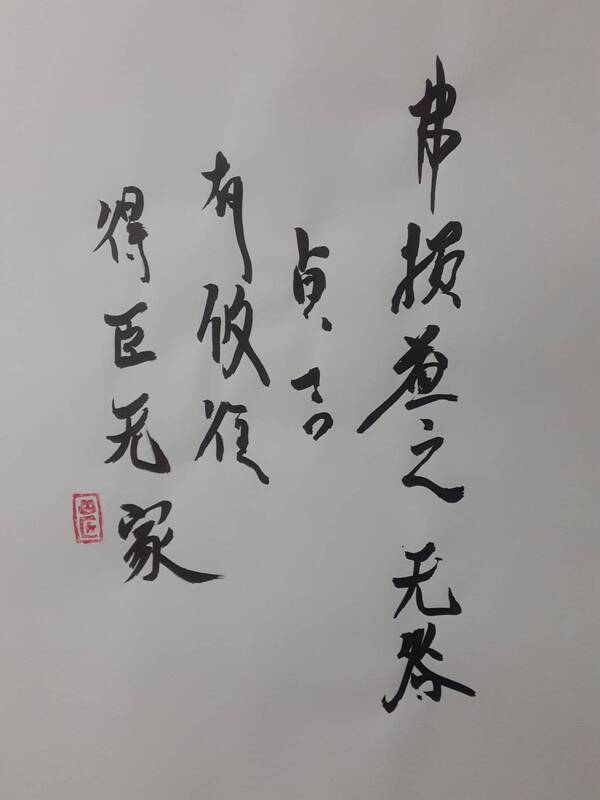 弗损益之无咎
贞吉
有攸往
得臣无家